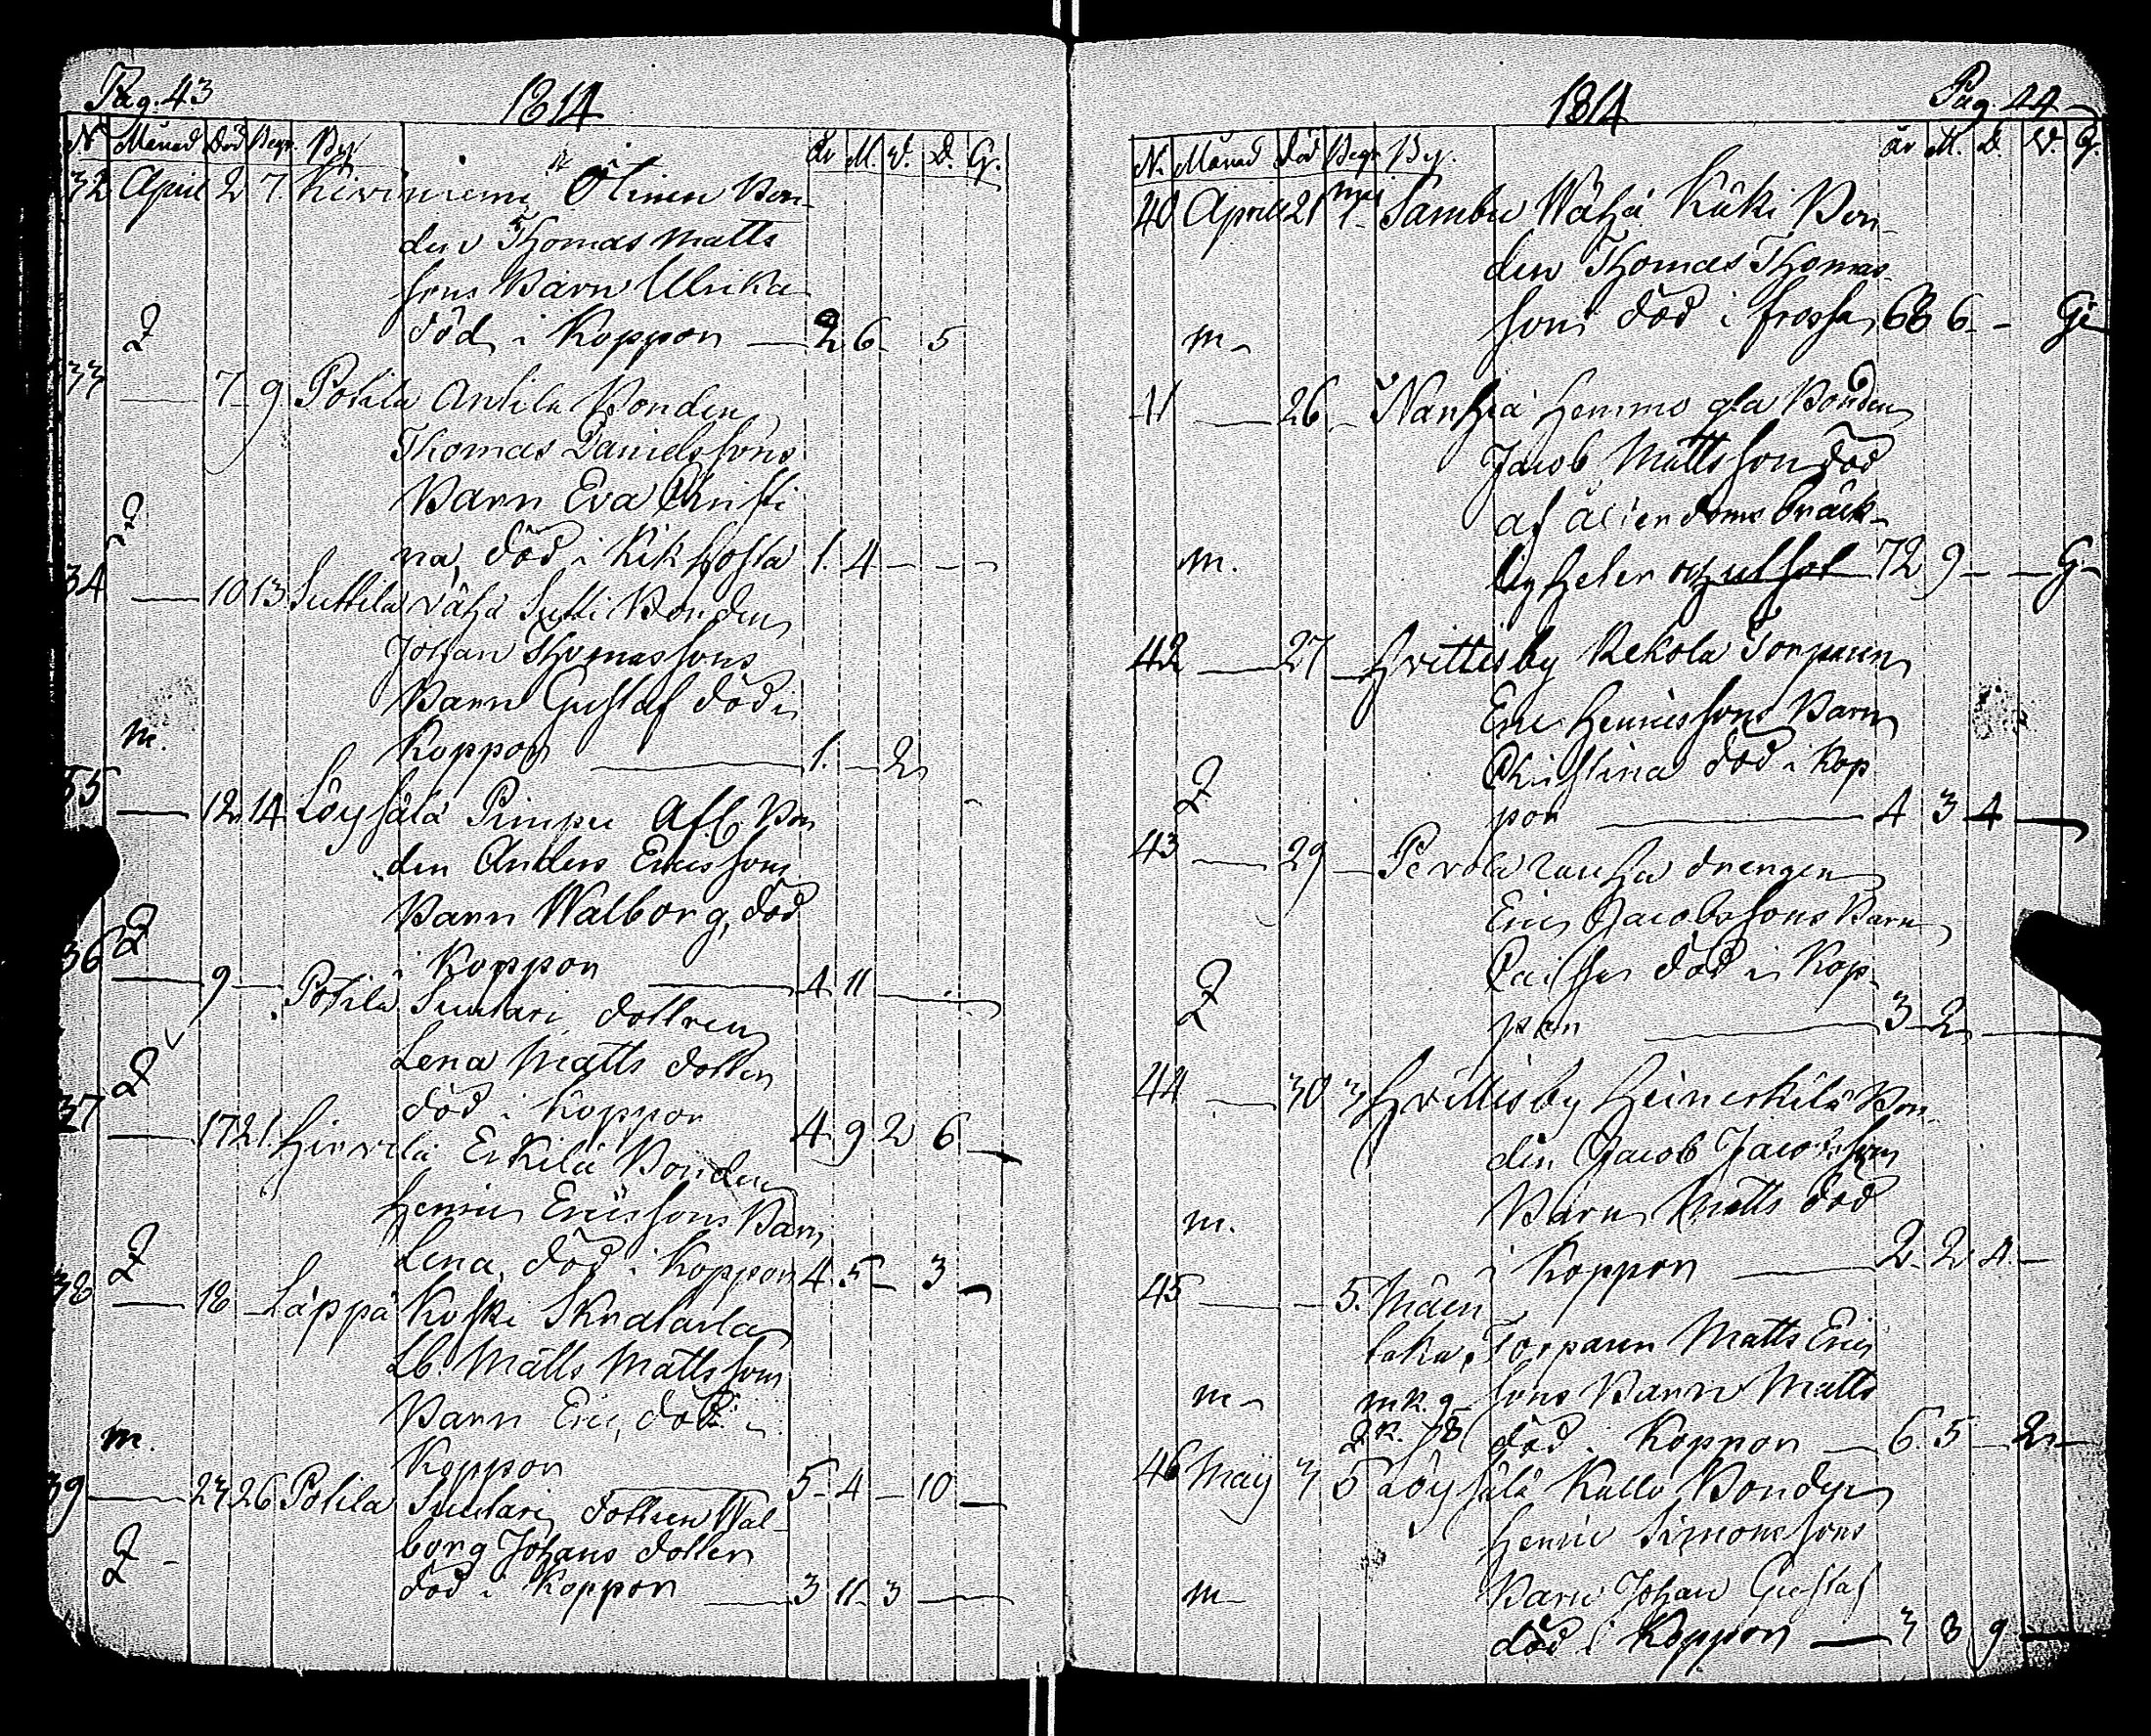 Pag. 43
1814
N Månad Död Begr. By År M. V. D. G.
32 April 2 7. Kiviniemi Ölinen Bon-
den Thomas Matts
sons Barn Ulrika
Q död i Koppor — 2 6 5
33 — 7 9 Potila Antila Bonden
Thomas Danielssons
Barn Eva Christi
Q na, död i Kikhosta 1. 4 - - -
34 — 10 13 Suttila Vähä Sutti Bonden
Johan Thomassons
Barn Gustaf död i
m. Koppor — 1. — 2
35 — 12 14 Löysälä Pimpu Afl. Bon
den Anders Ericssons
Barn Walborg, död
Q i Koppor — 4 11 —
36 — 9 — Potila Suutari dottren
Lena Matts dotter
Q död i Koppor 4 9 2 6 —
37 — 17 21. Hirvelä Erkilä Bonden
Henric Ericssons Barn
Q Lena, död i Koppor 4. 5 - 3 -
38 — 18 — Läppä Koski Skatarla
Lb. Matts Mattsson
Barn Eric, död i
m. Koppor — 5 - 4 - 10 —
39 — 23 26 Potila Suutari dottren Wal-
borg Johans dotter
Q - död i Koppor — 3 11 3 —
Pag. 44
1814
N. Månad Död Begr By. År M. D. V. G.
40 April 21 maj 1- Sambu Wähä Käki Bon-
den Thomas Thomas
m - son död i frossa 68 6 - Gi
41 — 26 - Nanhia Hemmo gla Bonden
Jacob Mattsson död
af ålderdoms bräck-
m. ligheter 72 9 - - G -
42 — 27 — Hvittisby Rekola Torparen
Eric Henricssons Barn
Christina död i Kop
Q por — 4 3 4 —
43 — 29 — Pevola rauha drengen
Eric Jacobssons Barn
död i Kop-
Q por — 3 - 2 —
44 — 30 3 Hvittisby Heinerkilä Bon-
den Jacob Jacobsson
m. Barn Matts död
i Koppor — 2. 2 4. —
45 — - 5. Mäen
taka, Torparen Matts Eric
m - mk. 9- sons Barn Matts
Q k. 78 död i Koppor — 6. 5 — 2 —
46 Maij 3 5 Löysälä Kallo Bonden
Henric Simonssons
m - Barn Johan Gustaf
död i Koppor — 3 8 9 —